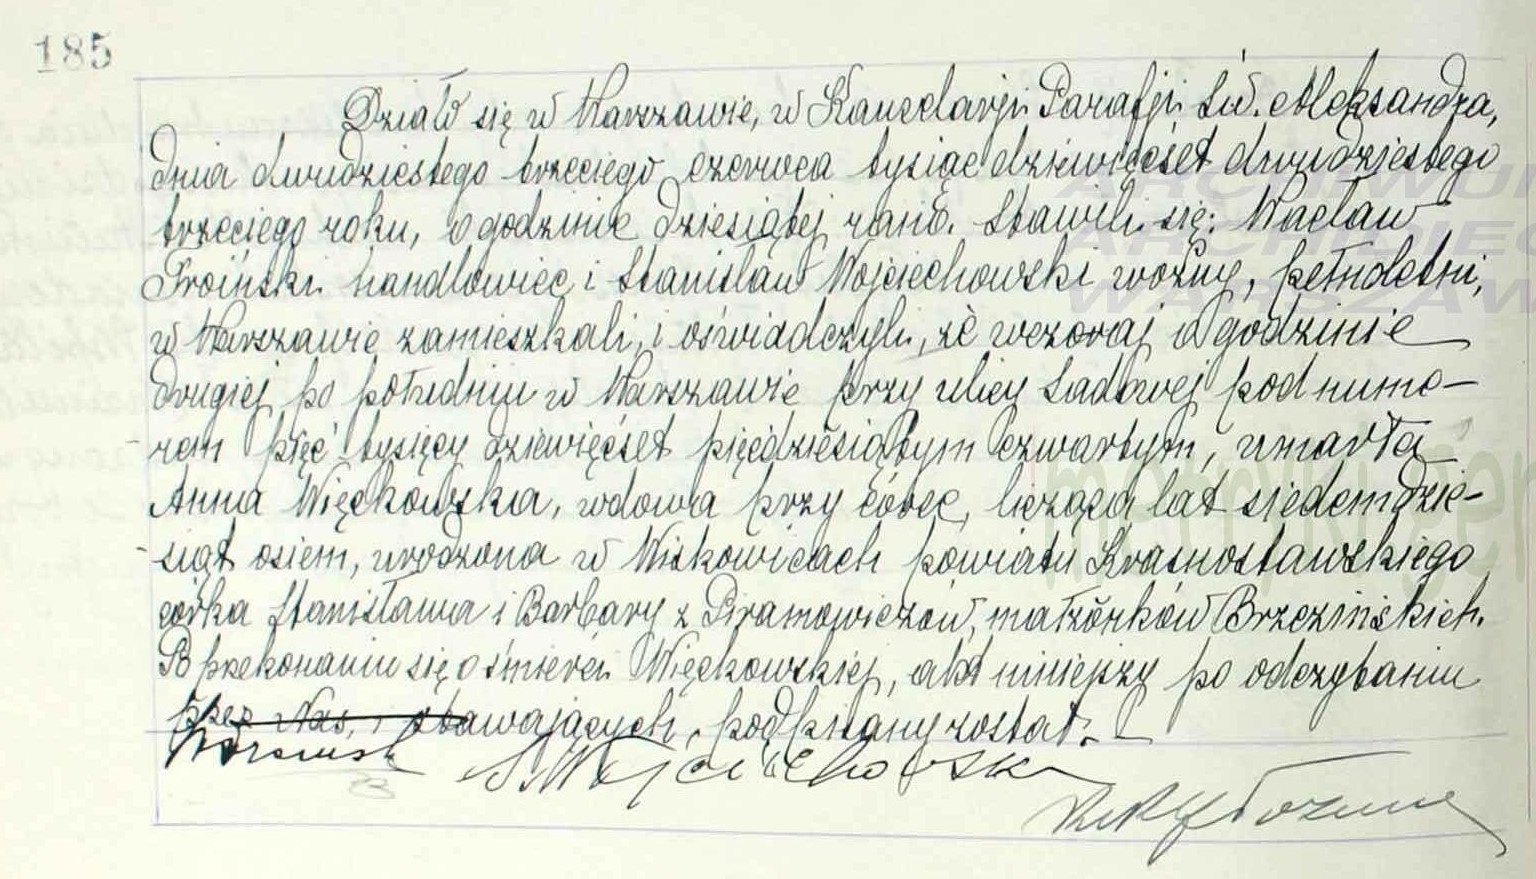 185
Działo się w Warszawie, w Kancelaryi Parafji Św. Aleksandra,
dnia dwudziestego trzeciego czerwca tysiąc dziewięćset dwudziestego
trzeciego roku, o godzinie dziesiątej rano. Stawili się: Wacław
Troiński handlowiec i Stanisław Wojciechowski woźny, pełnoletni,
w Warszawie zamieszkali, i oświadczyli, że wczoraj o godzinie
drugiej po południu w Warszawie przy ulicy Sadowej pod nume-
rem pięć tysięcy dziewięćset pięćdziesiątym czwartym, umarła
Anna Więckowska, wdowa przy córce, licząca lat siedemdzie-
siąt osiem, urodzona w Wiskowicach powiatu Krasnostawskiego
córka Stanisława i Barbary z Piramowiczów, małżonków Brzezińskich.
Po przekonaniu się o śmierci Więckowskiej, akt niniejszy po odczytaniu
przez Nas, i stawających podpisany został.
S. Wojciechowski
ARCHIWUM
ARCHIDIEC
WARSZAW
metryki.gen